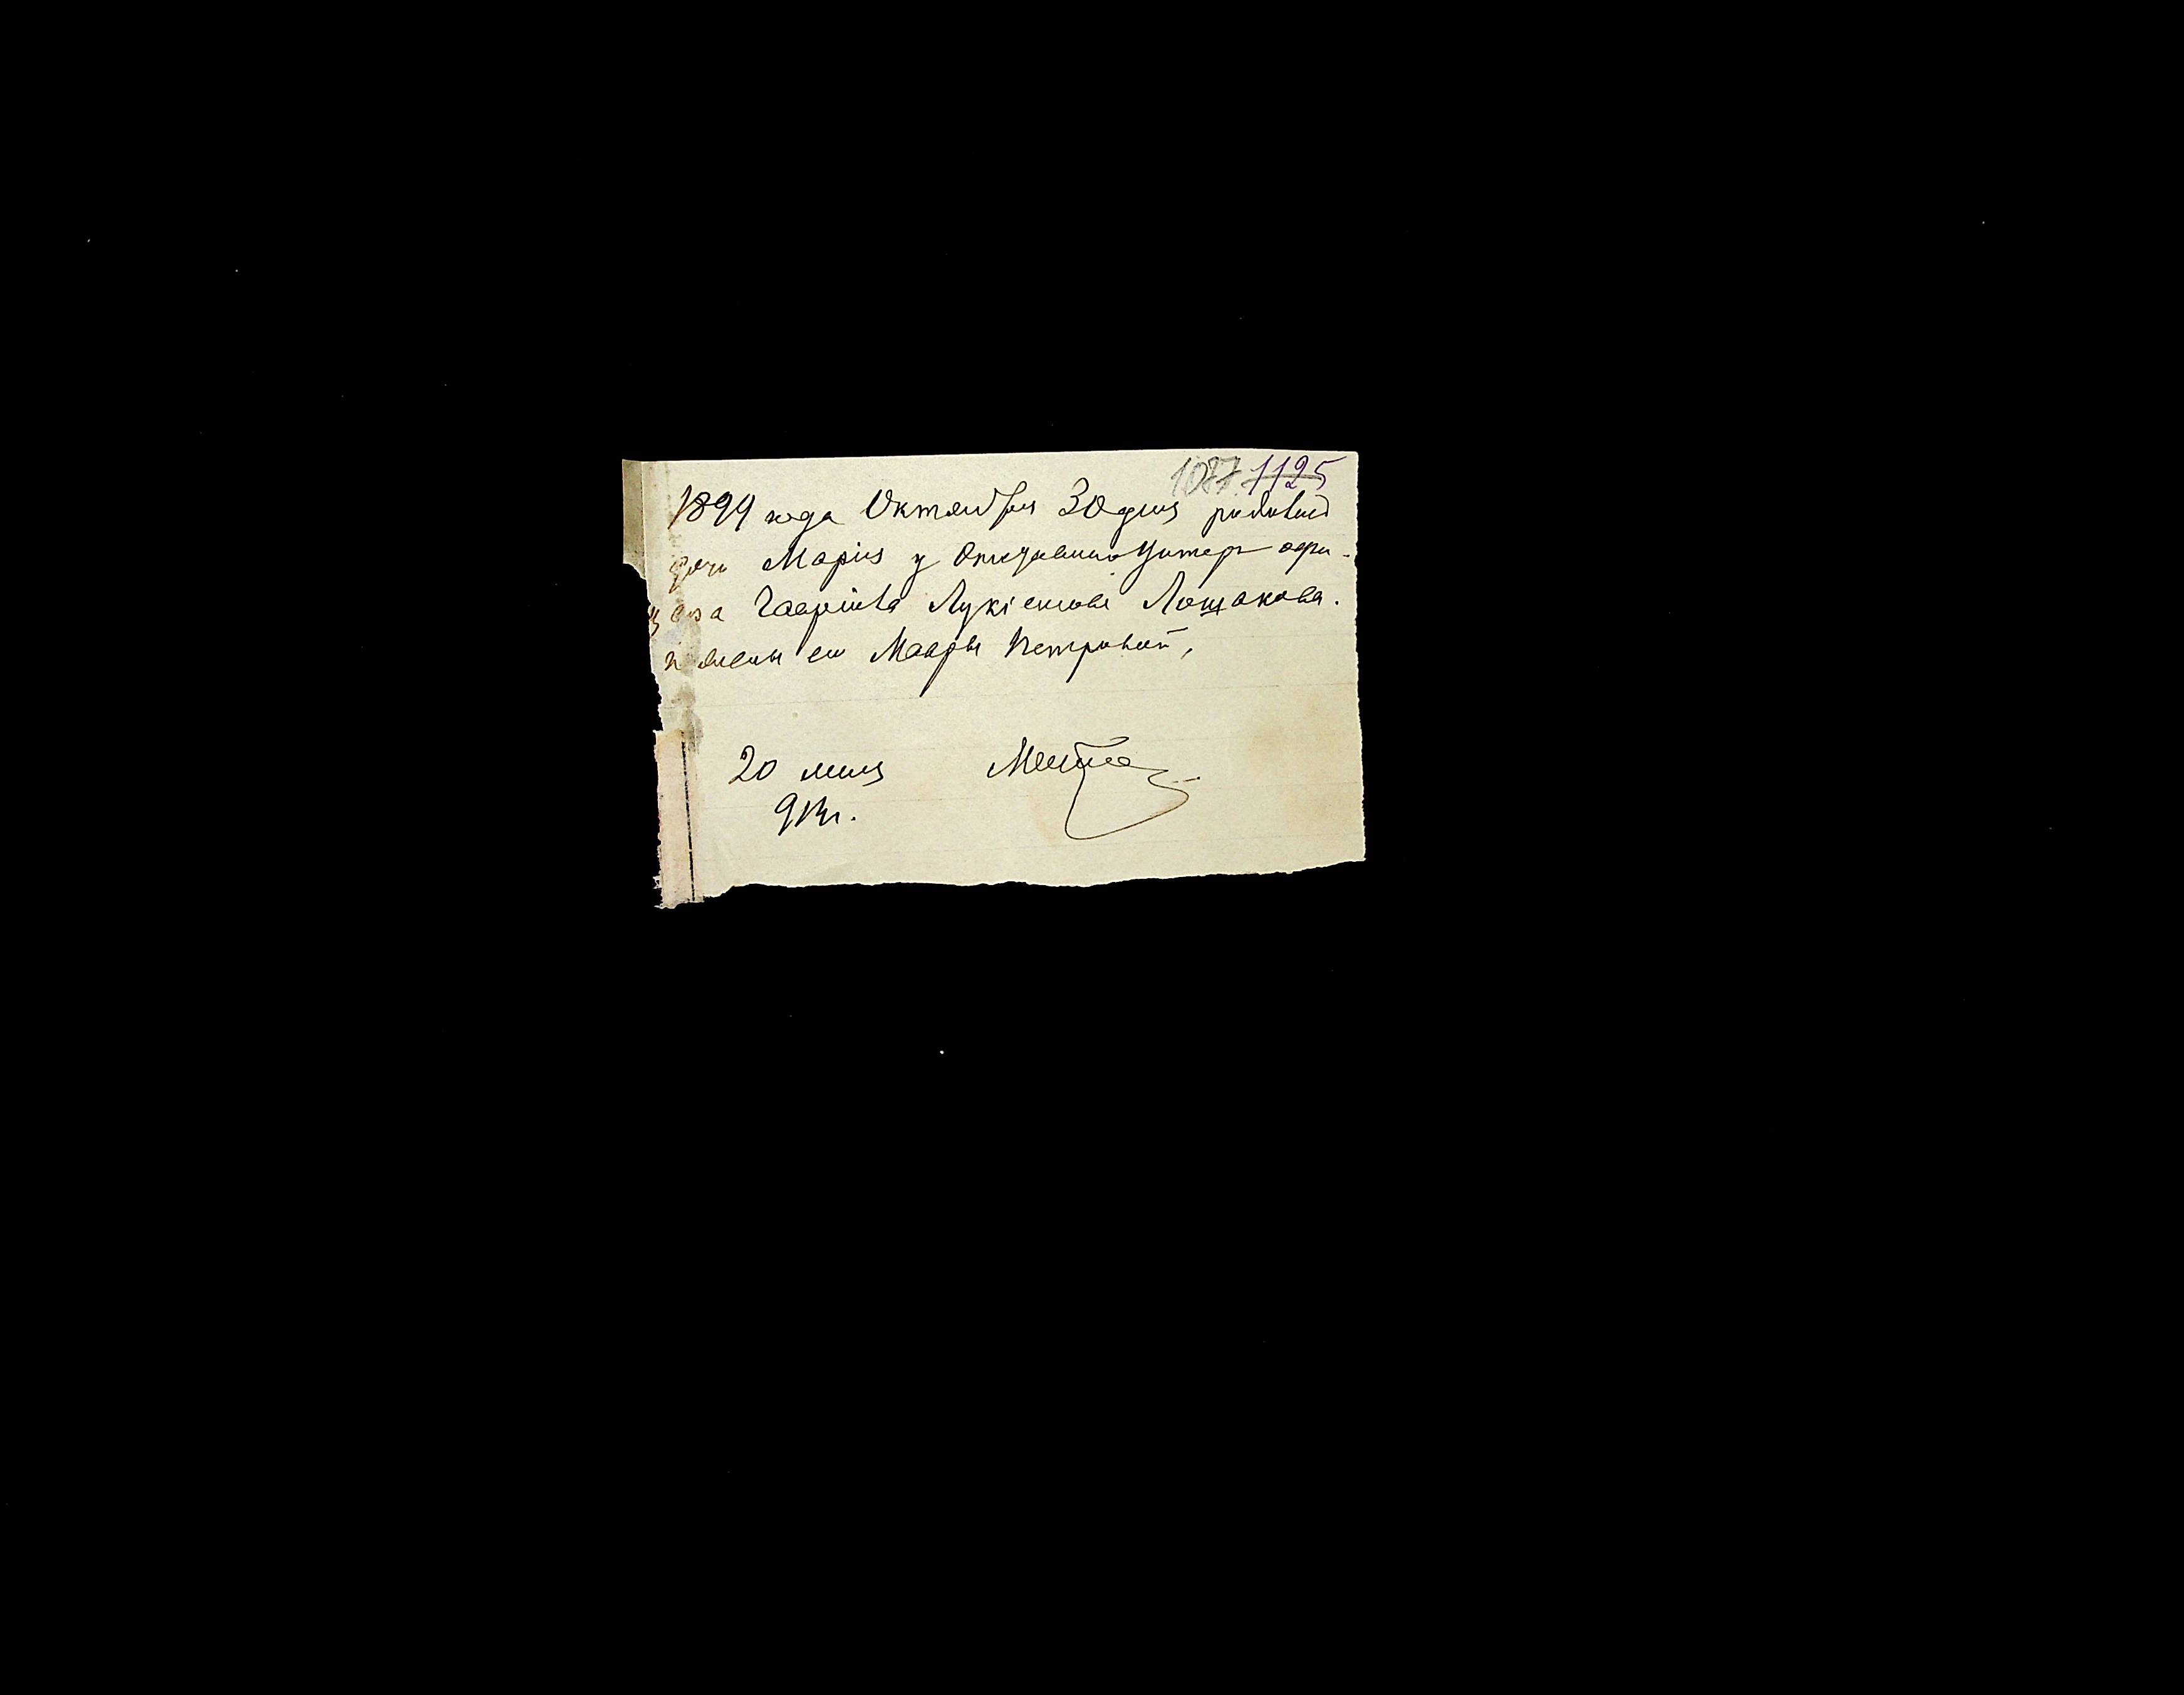 1087. 1125
1899 года Октября 30 дня родилась
дочь Марія у Отставного Унтеръ офи-
цера Гавріила Лукіанова Лошакова.
и жены его Мавры Петровой,
20 мая
913 г.